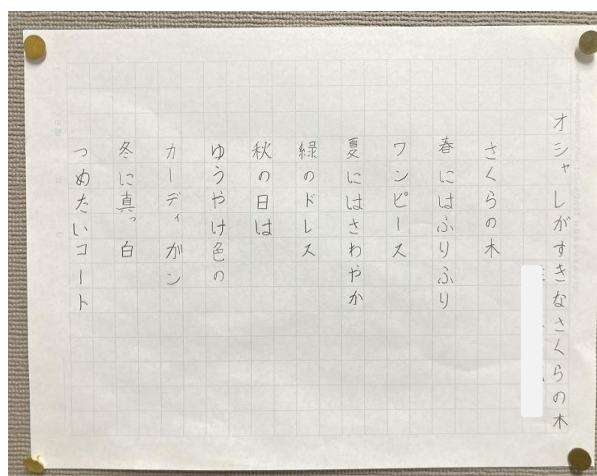 オシャレがすきなさくらの木
さくらの木
春にはふりふり
ワンピース
夏にはさわやか
緑のドレス
秋の日は
ゆうやけ色の
カーディガン
冬に真っ白
つめたいコート